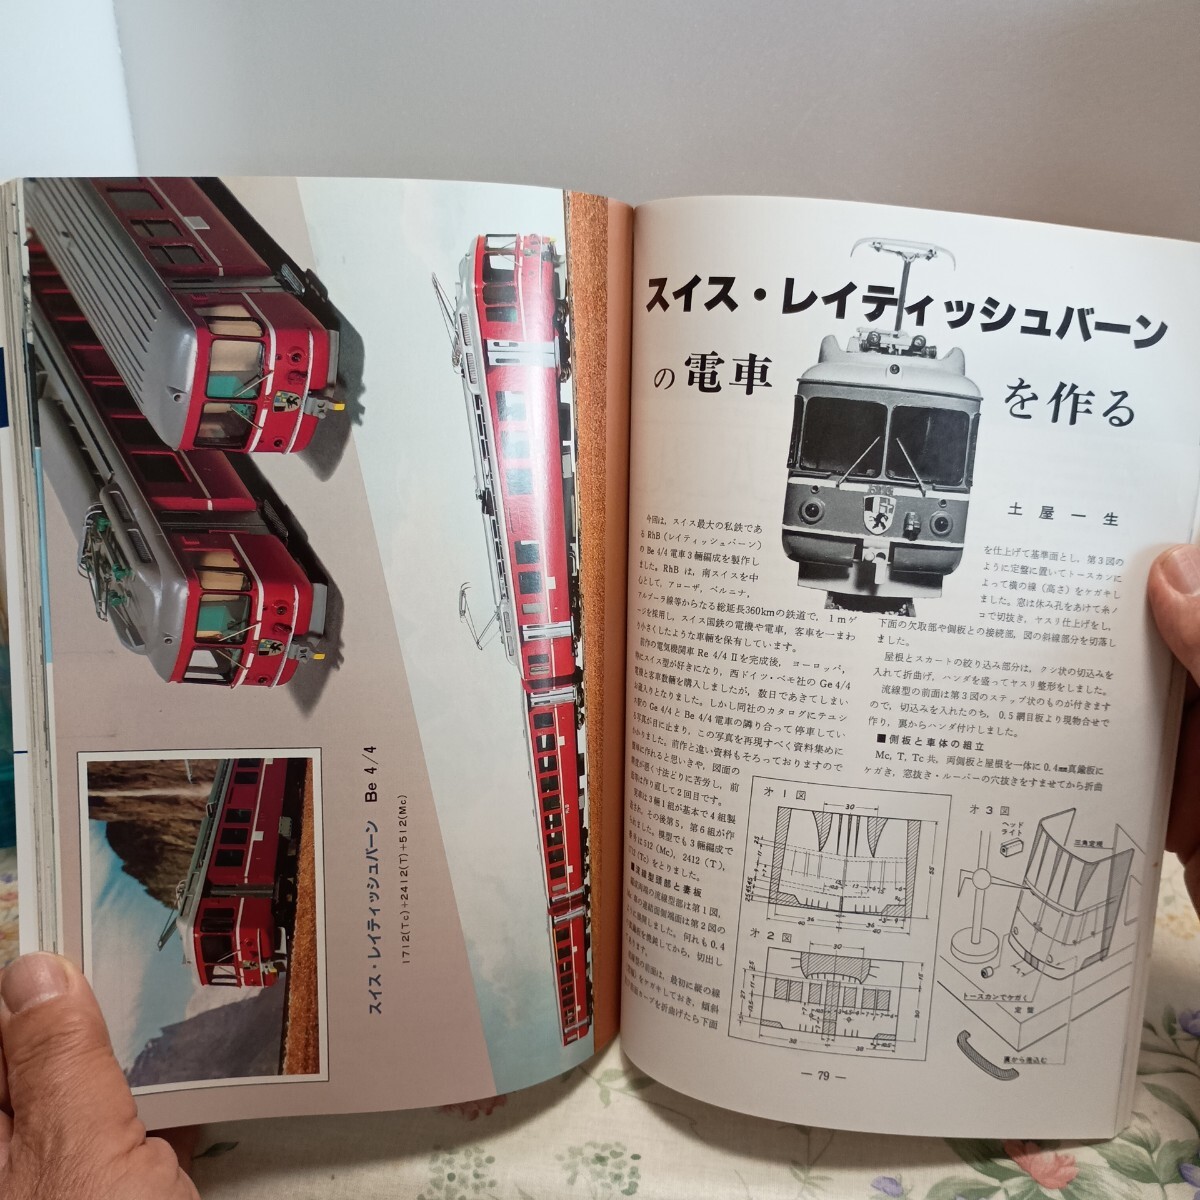 スイス・レイティッシュバーン Be 4/4
1712(Tc)+2412(T)+512(Mc)
スイス・レイティッシュバーン
の電車
を作る
土屋一生
今回は、スイス最大の私鉄であ
る RhB (レイティッシュバーン)
の Be 4/4 電車3輛編成を製作し
ました。RhB は、南スイスを中
心として、アローザ、ベルニナ、
アルブーラ線等からなる総延長360kmの鉄道で、1mゲ
ージを採用し、スイス国鉄の電機や電車、客車を一まわ
り小さくしたような車輛を保有しています。
前作の電気機関車 Re 4/4 II を完成後、ヨーロッパ、
特にスイス型が好きになり、西ドイツ・ベモ社の Ge 4/4
電機と客車数輛を購入しましたが、数日であきてしまい
お蔵入りとなりました。しかし同社のカタログにテュシ
ス駅の Ge 4/4 と Be 4/4 電車の隣り合って停車してい
る写真が目に止まり、この写真を再現すべく資料集めに
かかりました。前作と違い資料もそろっておりますので
簡単に作れると思いきや、図面の
精度が悪く寸法どりに苦労し、前
面等は作り直して2回目です。
電車は3輛1組が基本で4組製
造され、その後第5、第6組が作
られました。模型でも3輛編成で
番号は512 (Mc)、2412 (T)、
1712 (Tc) をとりました。
■流線型頭部と妻板
を仕上げて基準面とし、第3図の
ように定盤に置いてトースカンに
よって横の線(高さ)をケガキし
ました。窓は休み孔をあけて糸ノ
コで切抜き、ヤスリ仕上げをし、
下面の欠取部や側板との接続部、図の斜線部分を切落し
ました。
屋根とスカートの絞り込み部分は、クシ状の切込みを
入れて折曲げ、ハンダを盛ってヤスリ整形をしました。
流線型の前面は第3図のステップ状のものが付きます
ので、切込みを入れたのち、0.5 網目板より現物合せで
作り、裏からハンダ付けしました。
■側板と車体の組立
Mc, T, Tc 共、両側板と屋根を一体に 0.4㎜真鍮板に
ケガき、窓抜き・ルーバーの穴抜きをすませてから折曲
オ1図
オ2図
オ3図
ヘッド
ライト
三角定規
トースカンでケガく
定盤
裏から差込む
— 79 —